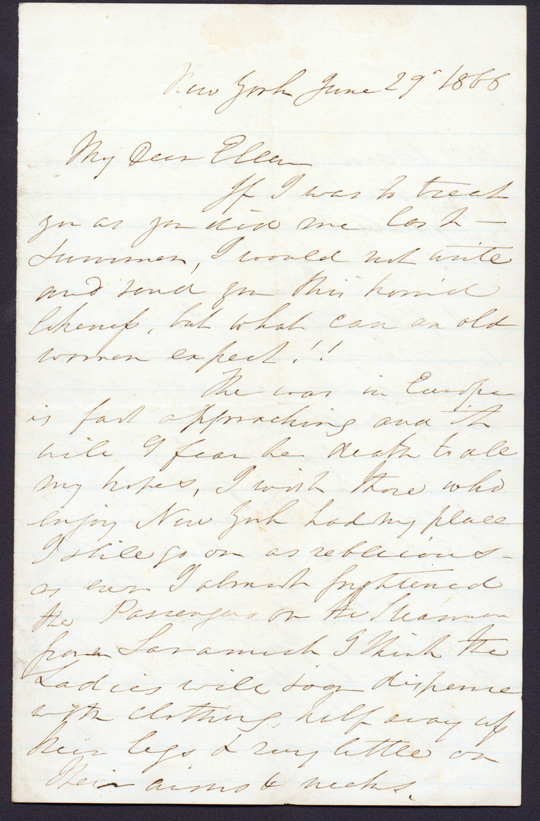 New York June 29th 1866
My Dear Ellen
If I was to treat
you as you did me last
Summer, I would not write
and send you this horrid
likeness, but what can an old
woman expect!!
The war in Europe
is fast approaching and it
will I fear be death to all
my hopes, I wish those who
enjoy New York had my place
I still go on as rebellious
as ever I almost frightened
the Passengers on the Steamer
from Savannah I think the
Ladies will soon dispense
with clothing half way up
their legs & very little on
their arms & necks.